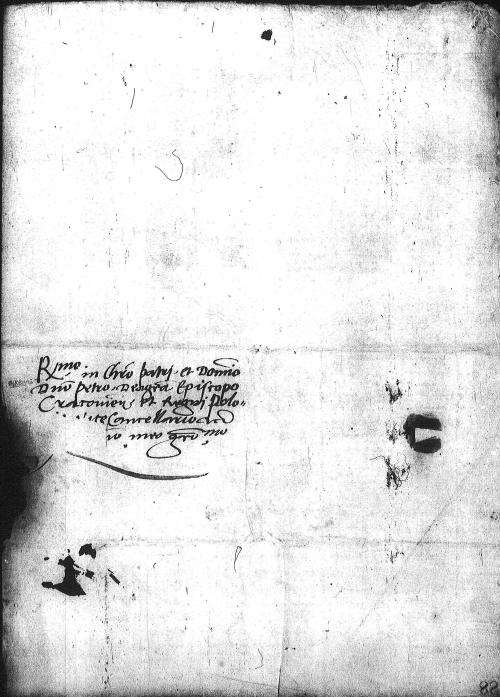 R.mo in Chro patri et Domino
Dno petro Dei gra Episcopo
Cracovien et Regni Polo-
Cancellario
meo gro.mo